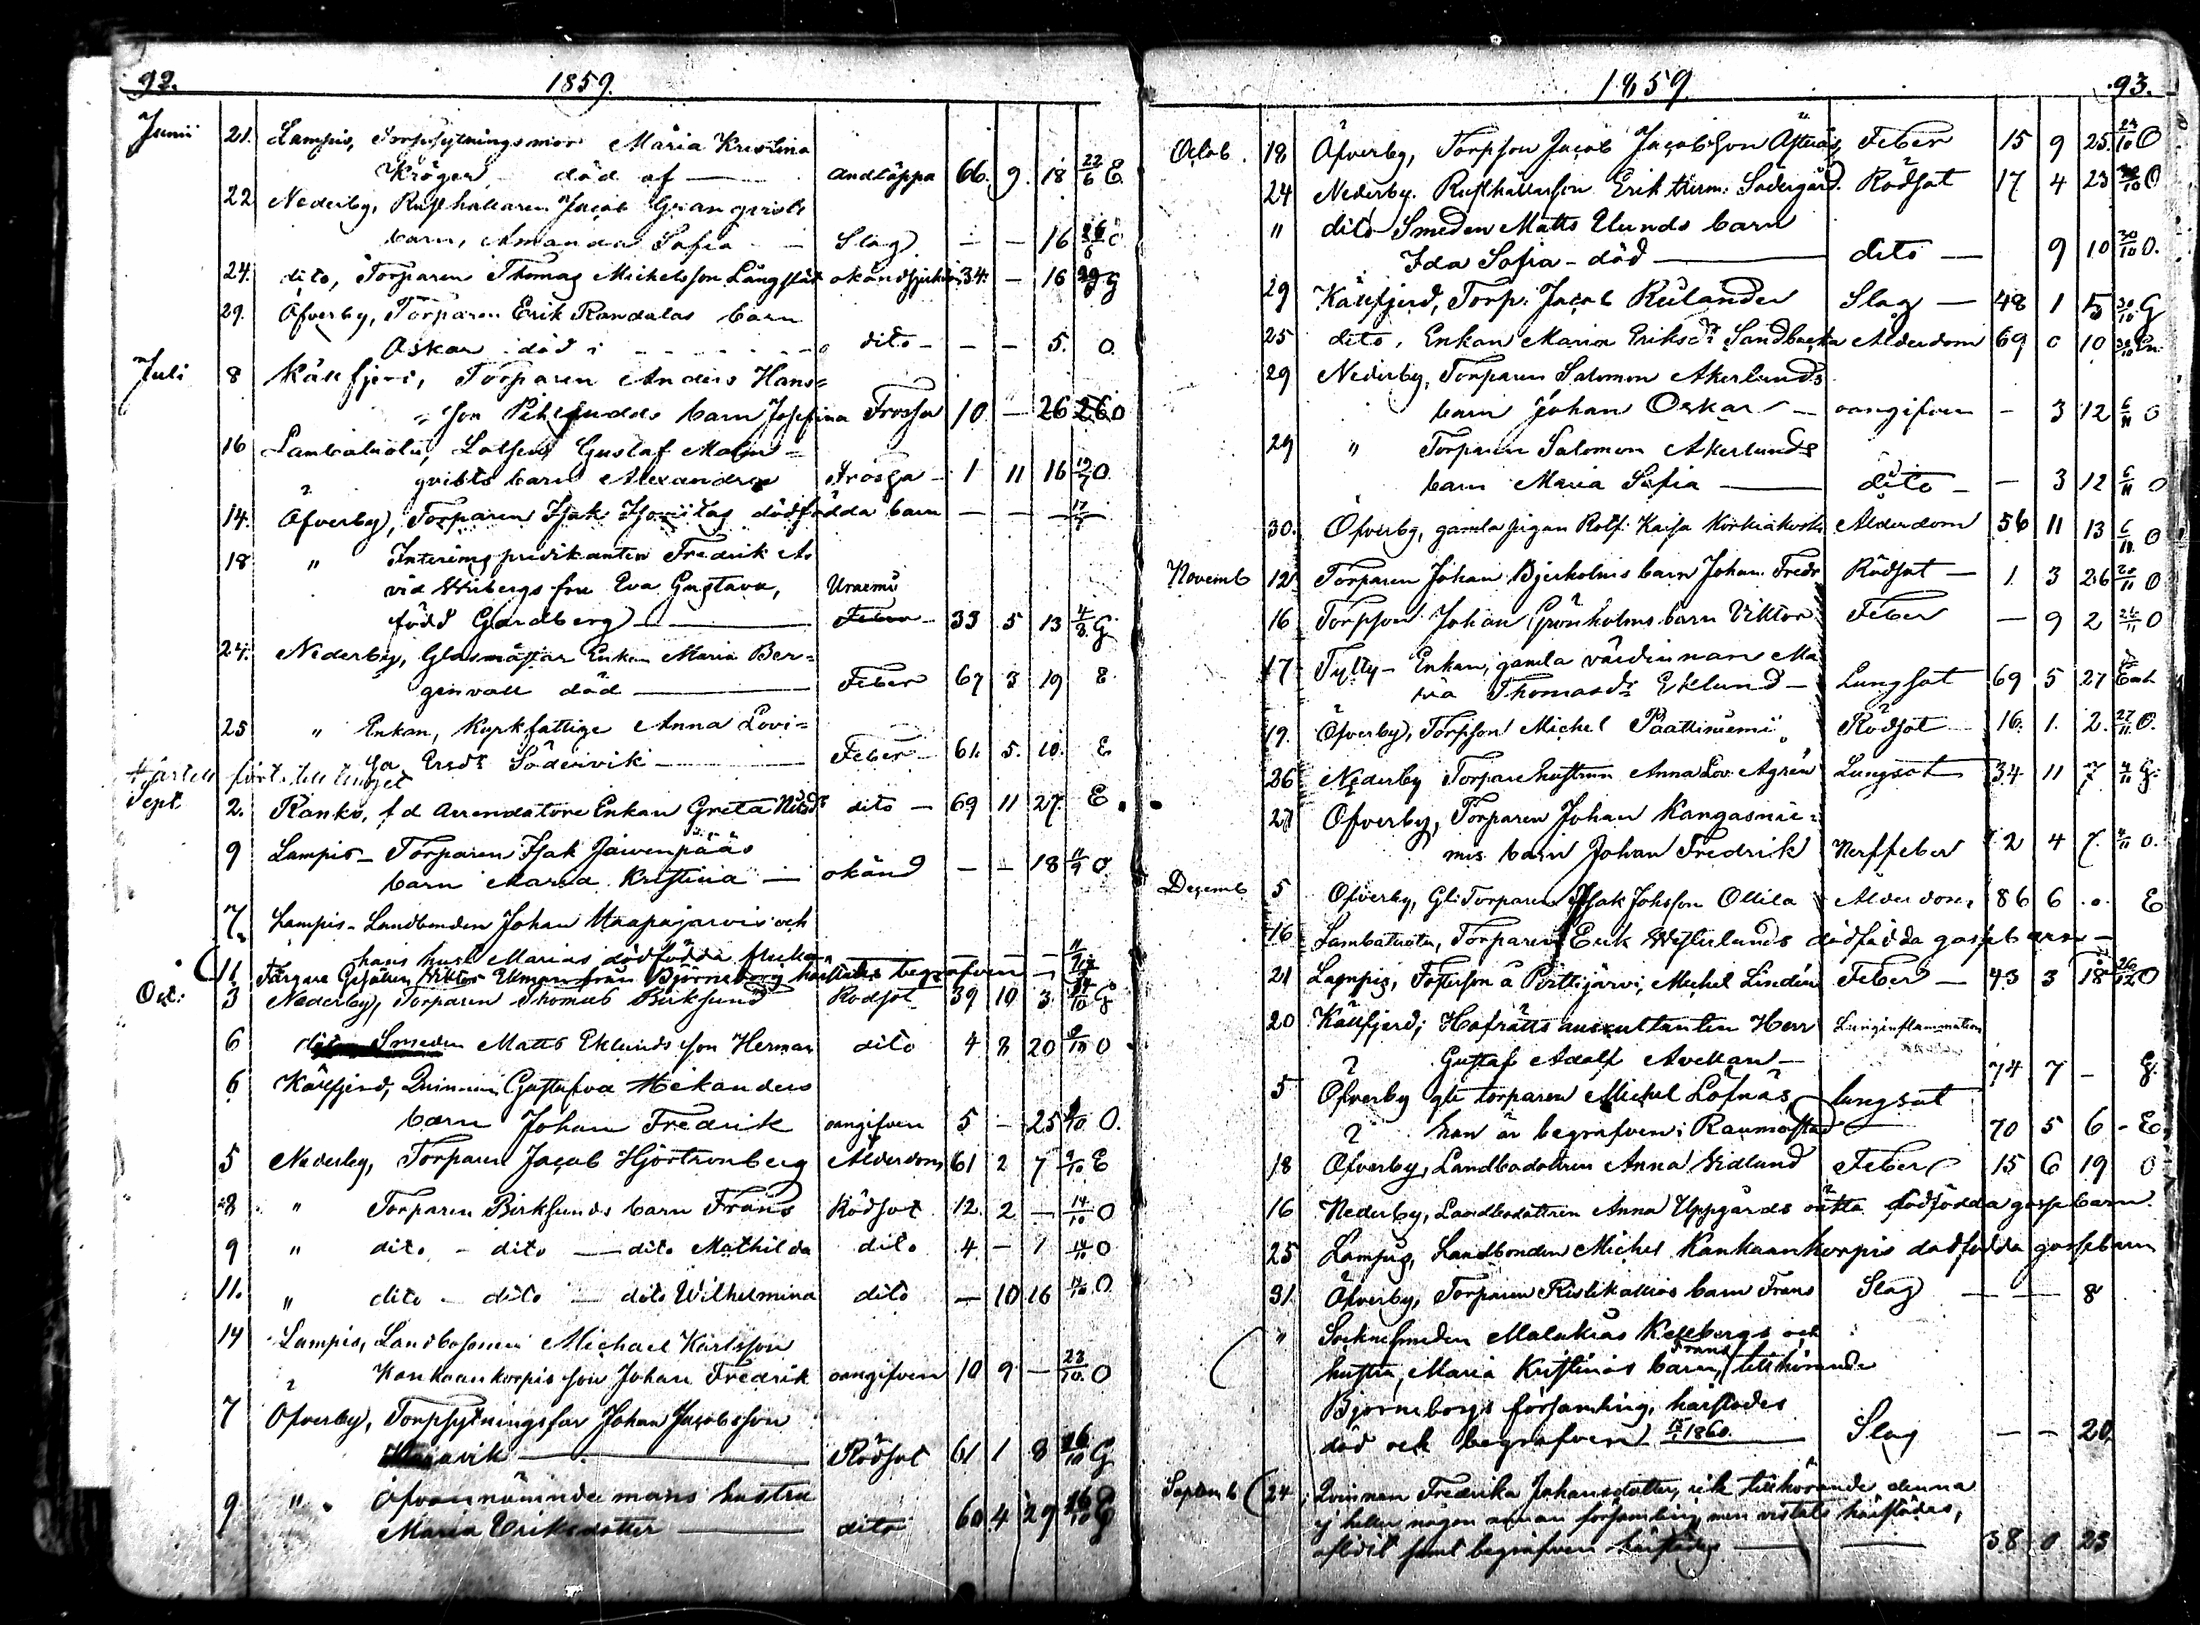 92. 1859.
Junii 21. Lampis, Torpsytningsmor Maria Kristina
Kröger, död af — andtäppa 66. 9. 18 22/6 E.
22 Nederby, Rusthållaren Jacob Granqvists
barn, Amanda Sofia — Slag — — 16 26/6 O
24. dito, Torparen Thomas Michelsson Långstät okänd sjukdom 34. — 16 G
29. Öfverby, Torparen Erik Randalas barn
Oskar död i dito — — — 5. O.
Juli 8 Källfjerd, Torparen Anders Hans=
son barn Josefina Frossa 10 — 26 O
16 Lambaluoto, Lotsens Gustaf Malm=
qvists barn Alexandra Frossa — 1 11 16 O.
14. Öfverby, Torparen Isak dödfödda barn — — — 17/7
18 " Interims predikanten Fredrik Ar
vid Wibergs fru Eva Gustava, Uraemi
född Gardberg — Feber — 33 5 13 4/8 G.
24. Nederby, Glasmästar Enkan Maria Ber=
genvall död — Feber 67 3 19 E.
25 " Enkan, Kyrkfattige Anna Lovi=
sa Ersdr Södervik — Feber — 61. 5. 10. E
fört till tinget
Sept. 2. Ranko, f d Arrendatore Enkan Greta Nilsdr dito — 69 11 27. E.
9 Lampis — Torparen Isak Järvenpääs
barn Maria Kristina — okänd — — 18 11/9 O
7. Lampis — Landbonden Johan Maapajarvis och
hans hust Marias dödfödda — — — 11/9
11. Färgare Gesällen Viktor Ulman från Björneborg härstädes begrafven
Oct: 3 Nederby, Torparen Thomas Birksund Rodsot 39 10 3. G
6 dito Smeden Matts Eklunds son Herman dito 4 8 20 9/10 O
6 Källfjerd, Quinnan Gustafva Mikanders
barn Johan Fredrik oangifven 5 — 25 O.
5 Nederby, Torparen Jacob Hjortronberg Ålderdom 61 2 7 9/10 E
8 " Torparen Birksunds barn Frans Rödsot 12. 2 — 14/10 O
9 " dito — dito — dito Mathilda dito 4 — 1 14/10 O
11. " dito — dito — dito Wilhelmina dito — 10 16 O
14 Lampis, Landbosonen Michael Karlsson
Kankaankorpis son Johan Fredrik oangifven 10 9 — 23/10 O
7 Öfverby, Torpsytningsfar Johan Jacobsson
Rödsot 61 1 8 16/10 G
9 " Ofvannämnde mans hustru
Maria Eriksdotter — dito 60 4 29 16/10 E
1859. 93.
Octob. 18 Öfverby, Torpson Jacob Jacobsson Feber 15 9 25. 23/10 O
24 Nederby. Rusthållarson Erik Herm. Södergård. Rödsot 17 4 23 O
" dito Smeden Matts Elunds barn
Ida Sofia — död — dito — 9 10 30/10 O.
29 Källfjerd, Torp. Jacob Rulander Slag — 48 1 5 30/10 G
25 dito, Enkan Maria Eriksdr Sandbacka Alderdom 69 0 10 En.
29 Nederby, Torparen Salomon Åkerlunds
barn Johan Oskar — oangifven — 3 12 6/11 O
29 " Torparen Salomon Åkerlunds
barn Maria Sofia — dito — — 3 12 6/11 O
30. Öfverby, gamla pigan Kajsa Alderdom 56 11 13 6/11 O
Novemb 12 Torparen Johan Bjerkolms barn Johan Fredr Rödsot — 1. 3 26 20/11 O
16 Torpson Johan Grönholms barn Viktor Feber — 9 2 O
17 Tylty — Enkan, gamla värdinnan Ma
ria Thomasdr Eklund — Lungsot 69 5 27
19. Öfverby, Torpson Michel Paattiniemi Rödsot 16. 1. 2. 27/11 O.
26 Nederby Torparehustrun Anna Lov. Agrén Lungsot 34 11 7 G.
27 Öfverby, Torparen Johan Kangasnie=
mis barn Johan Fredrik Nerffeber 2 4 7. O.
Decemb 5 Öfverby, Gl. Torparen Isak Johsson Ollila Alderdom, 86 6 . o. E
16 Lambaluoto, Torparen Erik Westerlunds dödfödda gossebarn —
21 Lampis, Fosterson å Porttijärvi, Michel Lindén Feber — 43 3 18 26/12 O
20 Källfjerd; Hofrätts auscultanten Herr Lunginflammation
Gustaf Adolf Avellan — 74 7 — G.
5 Öfverby gle torparen Michel Löfnäs, lungsot
han är begrafven i Raumo stad 70 5 6 — E.
18 Öfverby, Landbodottren Anna Widlund Feber 15 6 19 O
16 Nederby, Landbodottren Anna Uppgårds oäkta dödfödda gossebarn.
25 Lampis, Landbonden Michel Kankaankorpis dödfödda gossebarn
31. Öfverby, Torparen Ristikallios barn Frans Slag — — 8
" Socknesmeden Malakias Kellbergs och
hustru, Maria Kristinas barn, Frans tillhörande
Björneborgs församling, härstädes
död och begrafven 15/1 1860. Slag — — 20.
Septemb 24 Qvinnan Fredrika Johansdotter, icke tillhörande denna
ej heller någon annan församling, men vistats härstädes,
aflidit samt begrafven härstädes — — 38 0 23